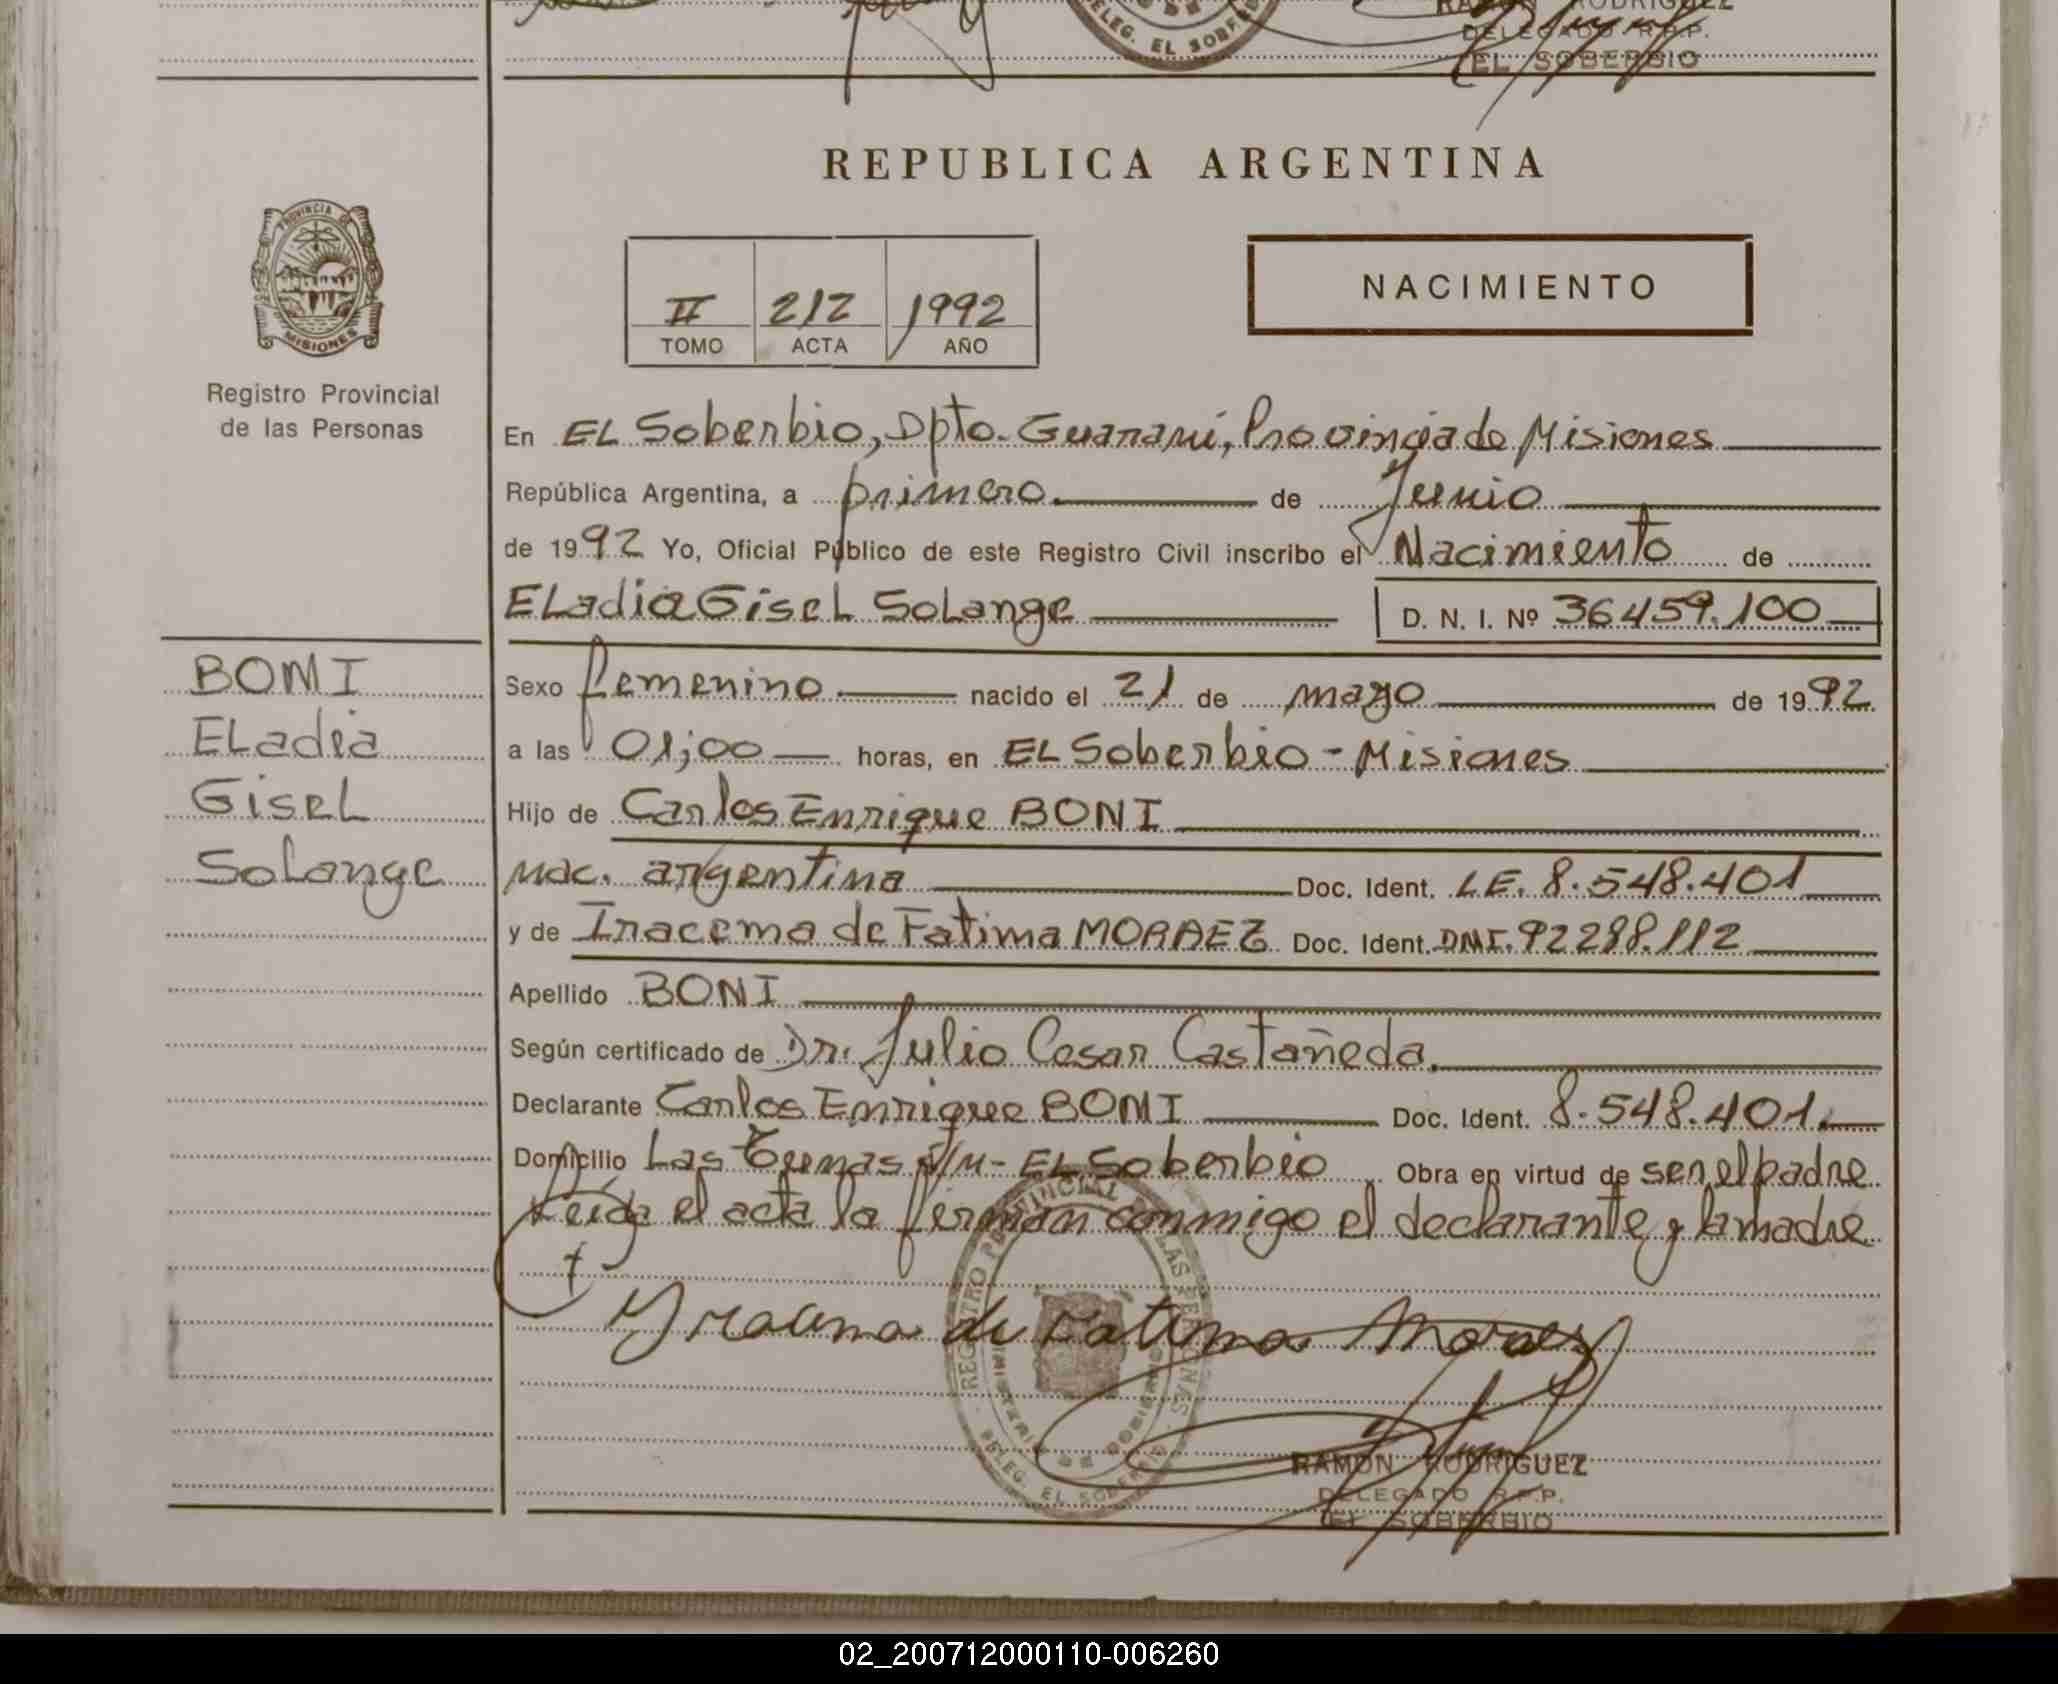 DELEG. EL SOBERBIO
RAMON RODRIGUEZ
DELEGADO R.P.P.
EL SOBERBIO
REPUBLICA ARGENTINA
PROVINCIA DE
MISIONES
Registro Provincial
de las Personas
II 212 1992
TOMO ACTA AÑO
NACIMIENTO
En EL Soberbio, Dpto. Guaraní, Provincia de Misiones
República Argentina, a primero de Junio
de 1992 Yo, Oficial Público de este Registro Civil inscribo el Nacimiento de
ELadia Gisel Solange D. N. I. Nº 36459.100
BONI
ELadia
Gisel
Solange
Sexo femenino nacido el 21 de mayo de 1992
a las 01;00 horas, en EL Soberbio - Misiones
Hijo de Carlos Enrique BONI
nac. argentina Doc. Ident. LE. 8.548.401
y de Iracema de Fatima MORAEZ Doc. Ident. DNI. 92288.112
Apellido BONI
Según certificado de Dr. Julio Cesar Castañeda.
Declarante Carlos Enrique BONI Doc. Ident. 8.548.401.
Domicilio Las Tunas S/N - EL Soberbio Obra en virtud de ser el padre
Leída el acta la firman conmigo el declarante y la madre
Iracema de Fatima Moraez
REGISTRO PROVINCIAL DE LAS PERSONAS
MINISTERIO DE GOBIERNO
DELEG. EL SOBERBIO
RAMON RODRIGUEZ
DELEGADO R.P.P.
EL SOBERBIO
02_200712000110-006260